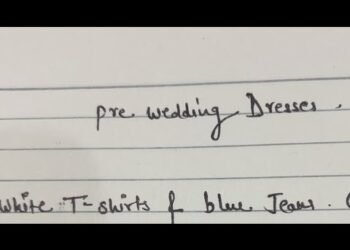 pre wedding Dresses.
white T-shirts & blue Jeans. (